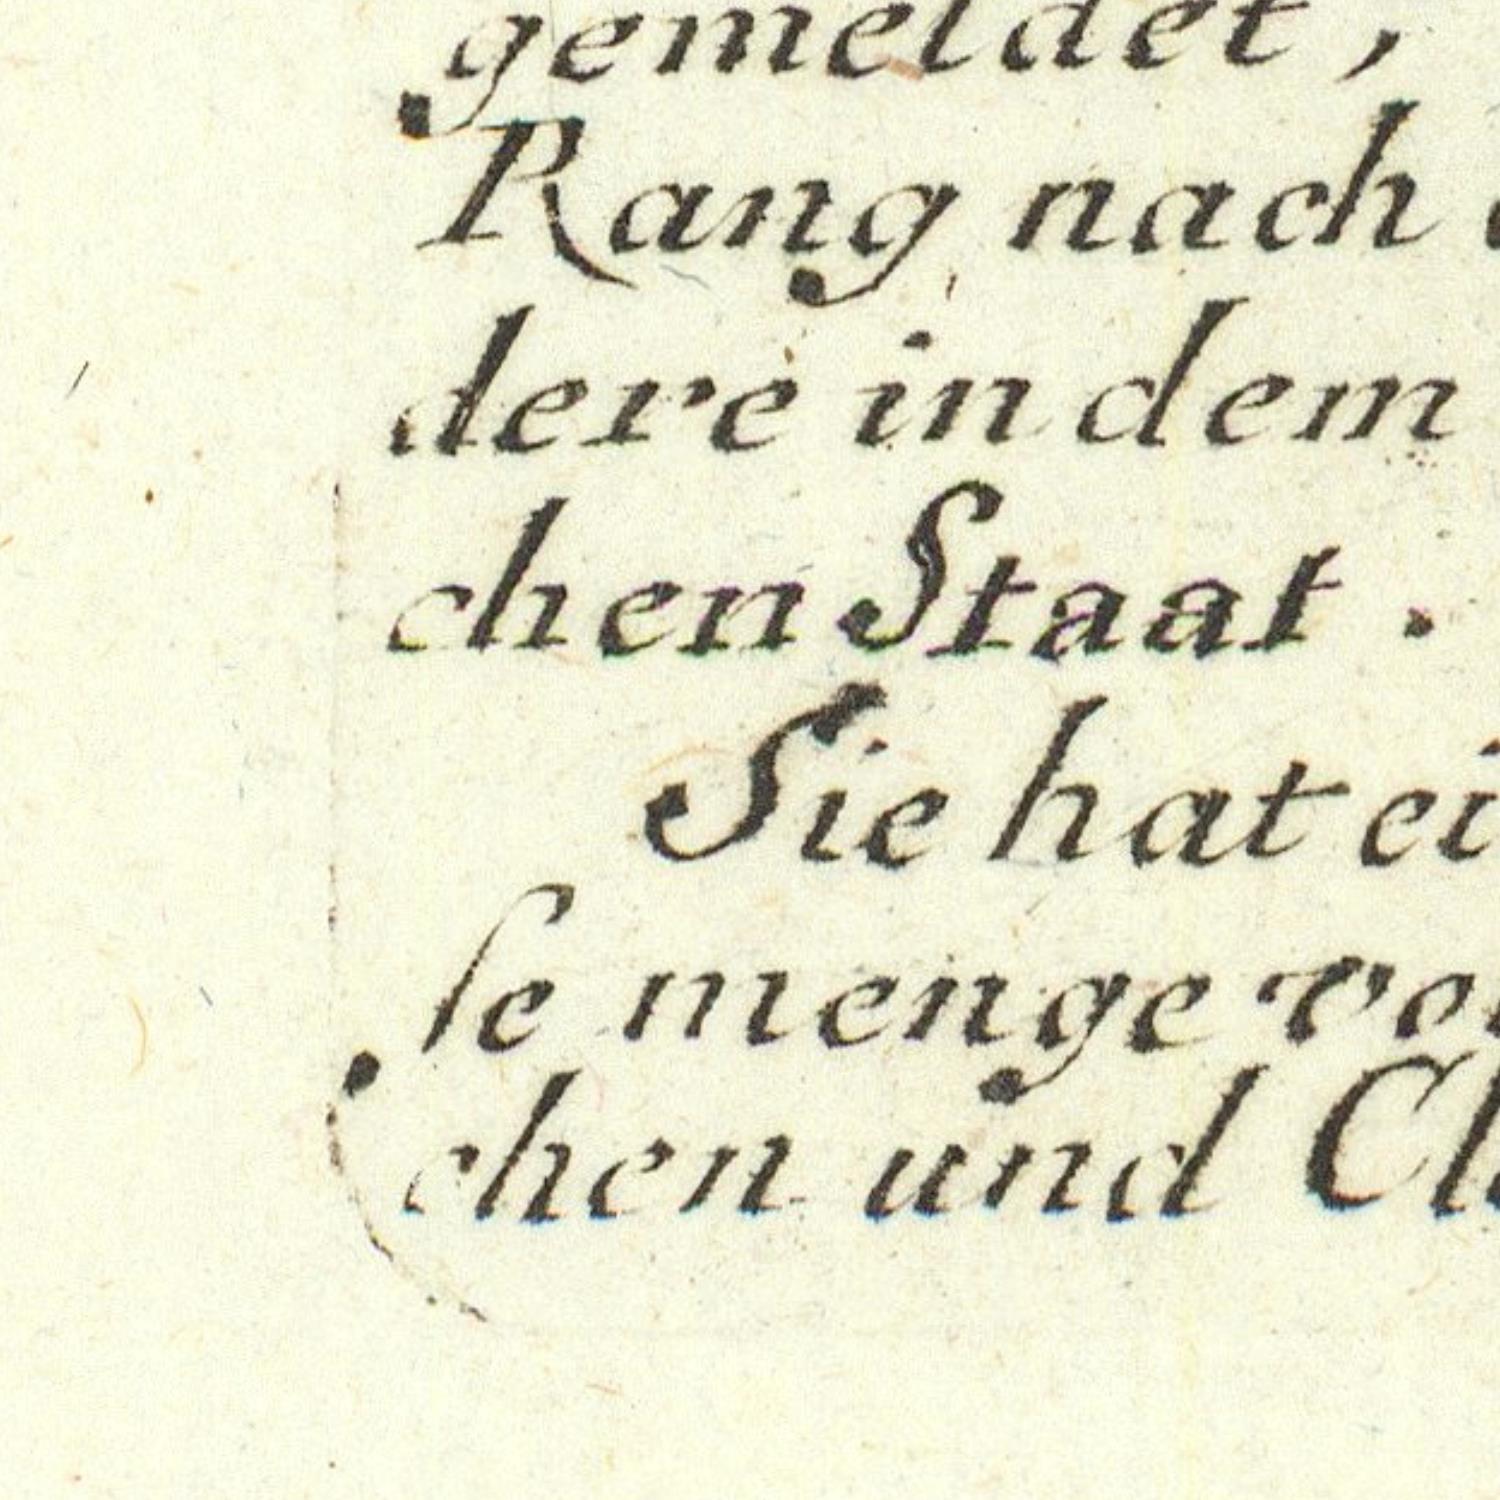 gemeldet,
Rang nach
dere in dem
chen Staat.
Sie hat ei
se menge vo
chen und Cl